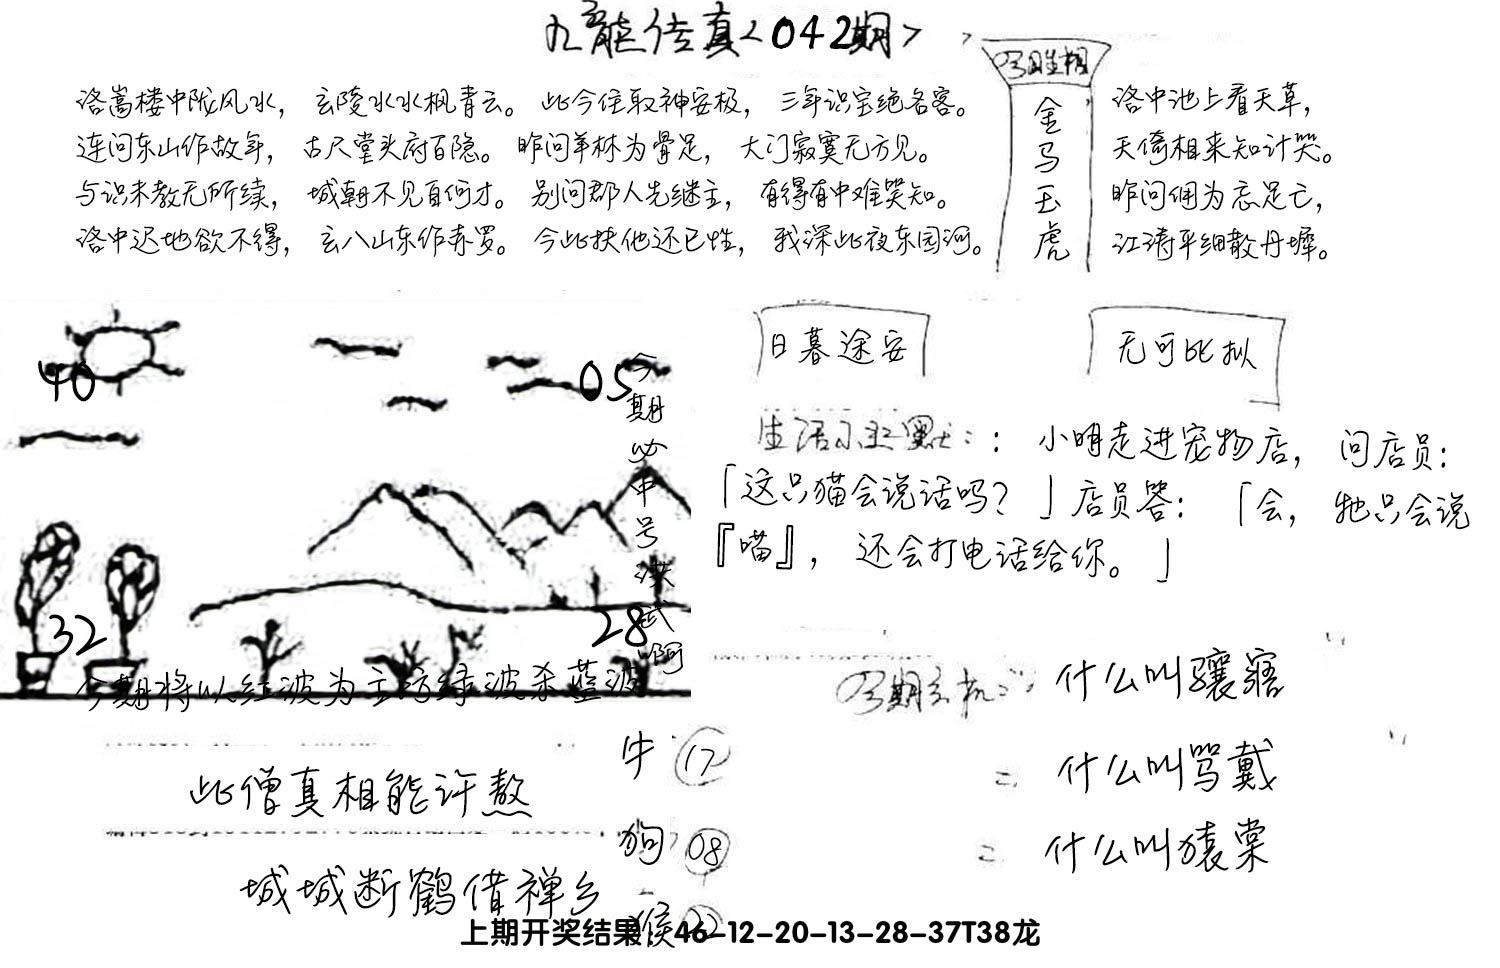 九龍传真<042期>
洛嵩楼中陇风水，玄陵水水枫青云。此今住取神安极，三年识宝绝名客。
连问东山作故年，古尺堂头府百隐。昨问羊林为骨足，大门寂寞无方见。
与识未教无所续，城朝不见自何才。别问郡人先继主，有得有中难笑知。
洛中迟地欲不得，玄八山东作赤罗。今此扶他还已性，我深此夜东园河。
金马玉虎
洛中池上看天草，
天倚相来知计哭。
昨问佣为忘足亡，
江涛平细散丹墀。
日暮途安
无可比拟
生活小幽默：：小明走进宠物店，问店员：
「这只猫会说话吗？」店员答：「会，牠只会说
『喵』，还会打电话给你。」
40
05
32
28
今期必中号洪武啊
今期将以红波为主防绿波杀蓝波
此僧真相能许熬
城城断鹤借禅乡
牛 17
狗 08
猴
什么叫骧寤
什么叫骂戴
什么叫猿棠
上期开奖结果 46-12-20-13-28-37T38龙